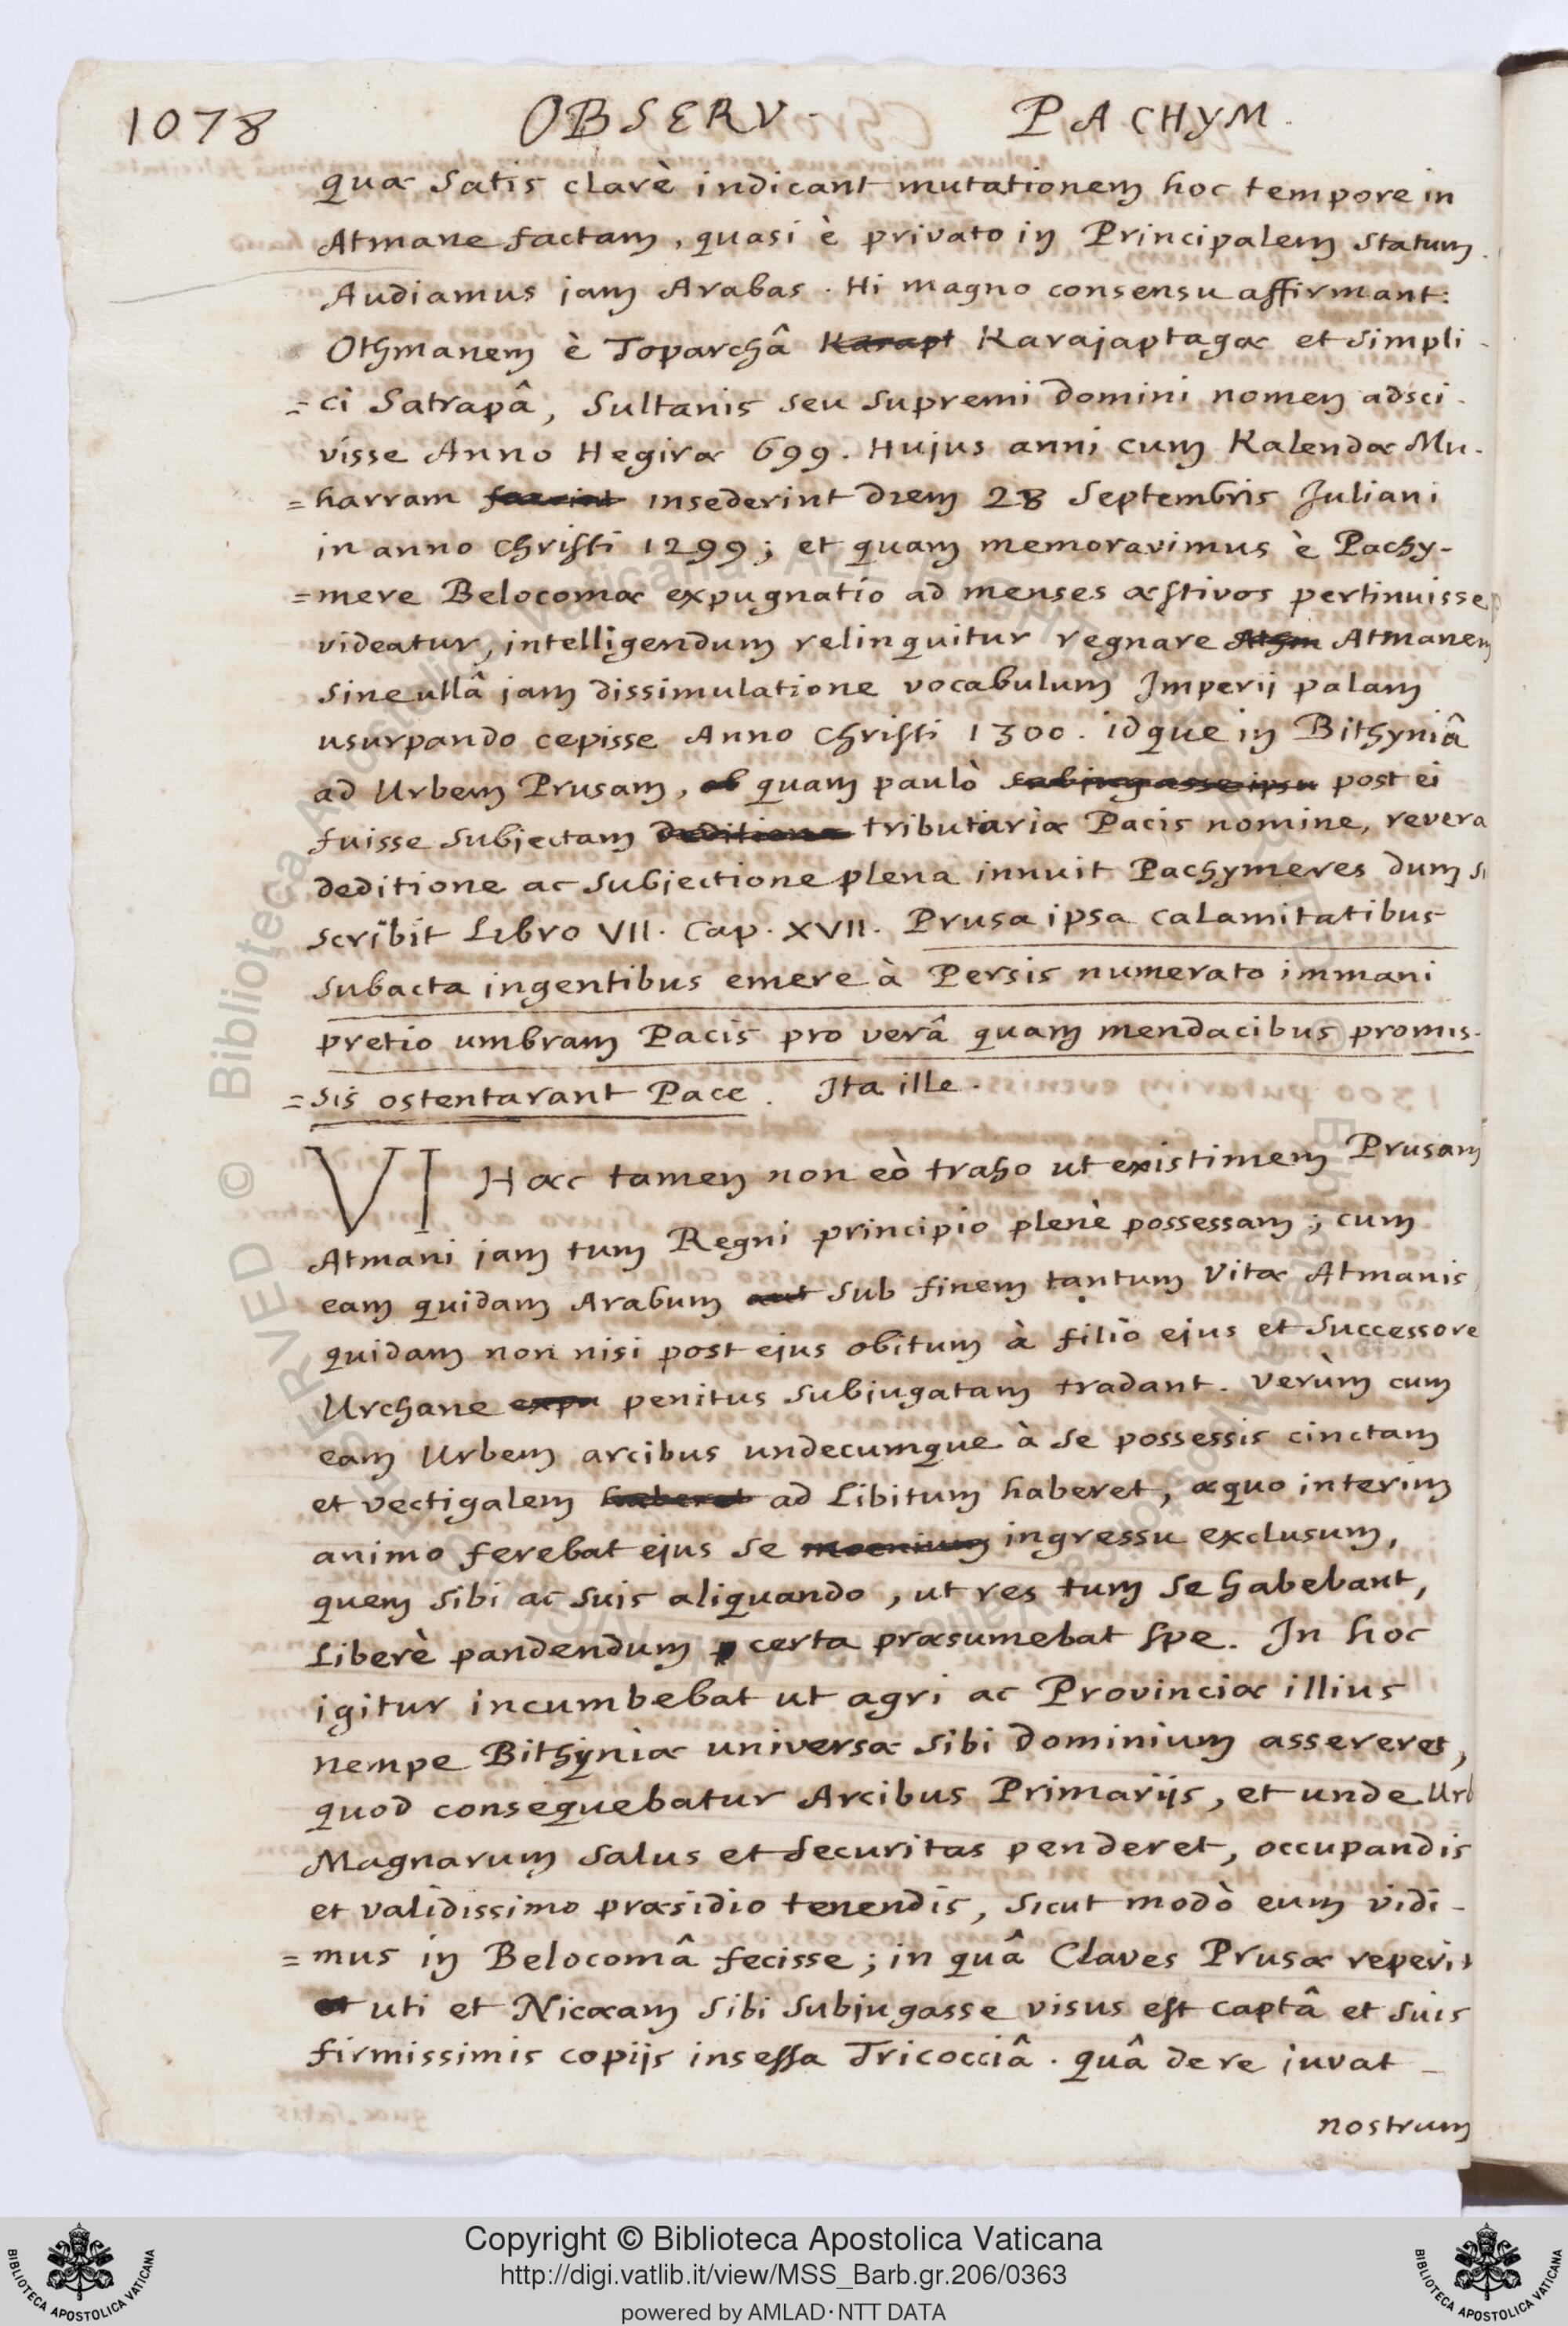 1078 OBSERV. PACHYM.
quæ satis clarè indicant mutationem hoc tempore in
Atmane factam, quasi è privato in Principalem statum.
Audiamus jam Arabas. Hi magno consensu affirmant:
Othmanem è Toparchâ Karapt Karajaptagæ et simpli-
=ci Satrapâ, Sultanis seu supremi domini nomen adsci-
visse Anno Hegiræ 699. Hujus anni cum Kalendæ Mu-
=harram fuerint insederint diem 28 Septembris Juliani
in anno Christi 1299; et quam memoravimus è Pachy-
=mere Belocomæ expugnatio ad menses æstivos pertinuisse
videatur, intelligendum relinquitur regnare Athm Atmanem
sine ullâ jam dissimulatione vocabulum Imperij palam
usurpando cepisse Anno Christi 1300. idque in Bithyniâ
ad Urbem Prusam, ob quam paulò subjugasse ipsu post ei
fuisse subjectam deditione tributariæ Pacis nomine, revera
deditione ac subjectione plena innuit Pachymeres dum si
scribit Libro VII. Cap. XVII. Prusa ipsa calamitatibus
subacta ingentibus emere à Persis numerato immani
pretio umbram Pacis pro verâ quam mendacibus promis-
=sis ostentarant Pace. Ita ille.
VI Hæc tamen non eò traho ut existimem Prusam
Atmani jam tum Regni principio plenè possessam; cum
eam quidam Arabum aut sub finem tantum Vitæ Atmanis
quidam non nisi post ejus obitum à filio ejus et Successore
Urchane expu penitus subjugatam tradant. Verùm cum
eam Urbem arcibus undecumque à se possessis cinctam
et vectigalem haberet ad Libitum haberet, æquo interim
animo ferebat ejus se moenium ingressu exclusum,
quem sibi ac suis aliquando, ut res tum se habebant,
Liberè pandendum certa præsumebat spe. In hoc
igitur incumbebat ut agri ac Provinciæ illius
nempe Bithyniæ universæ sibi dominium assereret,
quod consequebatur Arcibus Primarijs, et unde Urb
Magnarum salus et securitas penderet, occupandis
et validissimo præsidio tenendis, sicut modò eum vidi-
=mus in Belocomâ fecisse; in quâ Claves Prusæ reperit
et uti et Nicæam sibi subjugasse visus est captâ et suis
firmissimis copijs insessa Tricocciâ. quâ de re juvat
nostrum
Copyright © Biblioteca Apostolica Vaticana
http://digi.vatlib.it/view/MSS_Barb.gr.206/0363
powered by AMLAD·NTT DATA
BIBLIOTECA APOSTOLICA VATICANA
BIBLIOTECA APOSTOLICA VATICANA